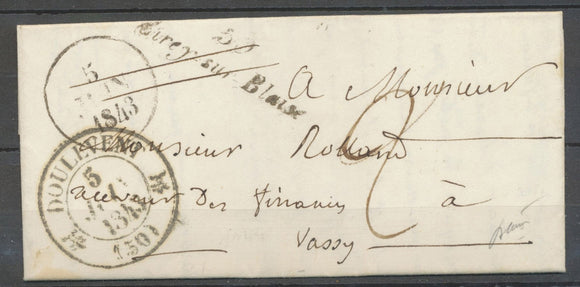 50
Cirey-sur-Blaise
5
JUIN
1843
A Monsieur
Monsieur Rolland
Receveur Des finances
à
Vassy
2
DOULEVENT
5
JUIN
1843
(50)